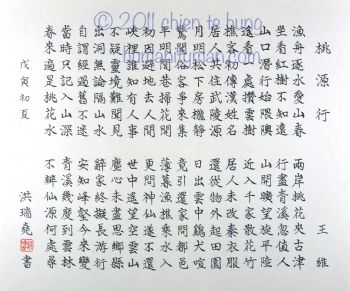 © 2011 chien te bung
桃源行 王維
漁舟逐水愛山春 兩岸桃花夾古津
坐看紅樹不知遠 行盡青溪忽值人
山口潛行始隈隩 山開曠望旋平陸
遙看一處攢雲樹 近入千家散花竹
樵客初傳漢姓名 居人未改秦衣服
居人共住武陵源 還從物外起田園
月明松下房櫳靜 日出雲中雞犬喧
驚聞俗客爭來集 競引還家問都邑
平明閭巷掃花開 薄暮漁樵乘水入
初因避地去人間 更問神仙遂不還
峽裡誰知有人事 世中遙望空雲山
不疑靈境難聞見 塵心未盡思鄉縣
出洞無論隔山水 辭家終擬長游衍
自謂經過舊不迷 安知峰壑今來變
當時只記入山深 青溪幾度到雲林
春來遍是桃花水 不辨仙源何處尋
戊寅初夏 洪瑞堯書